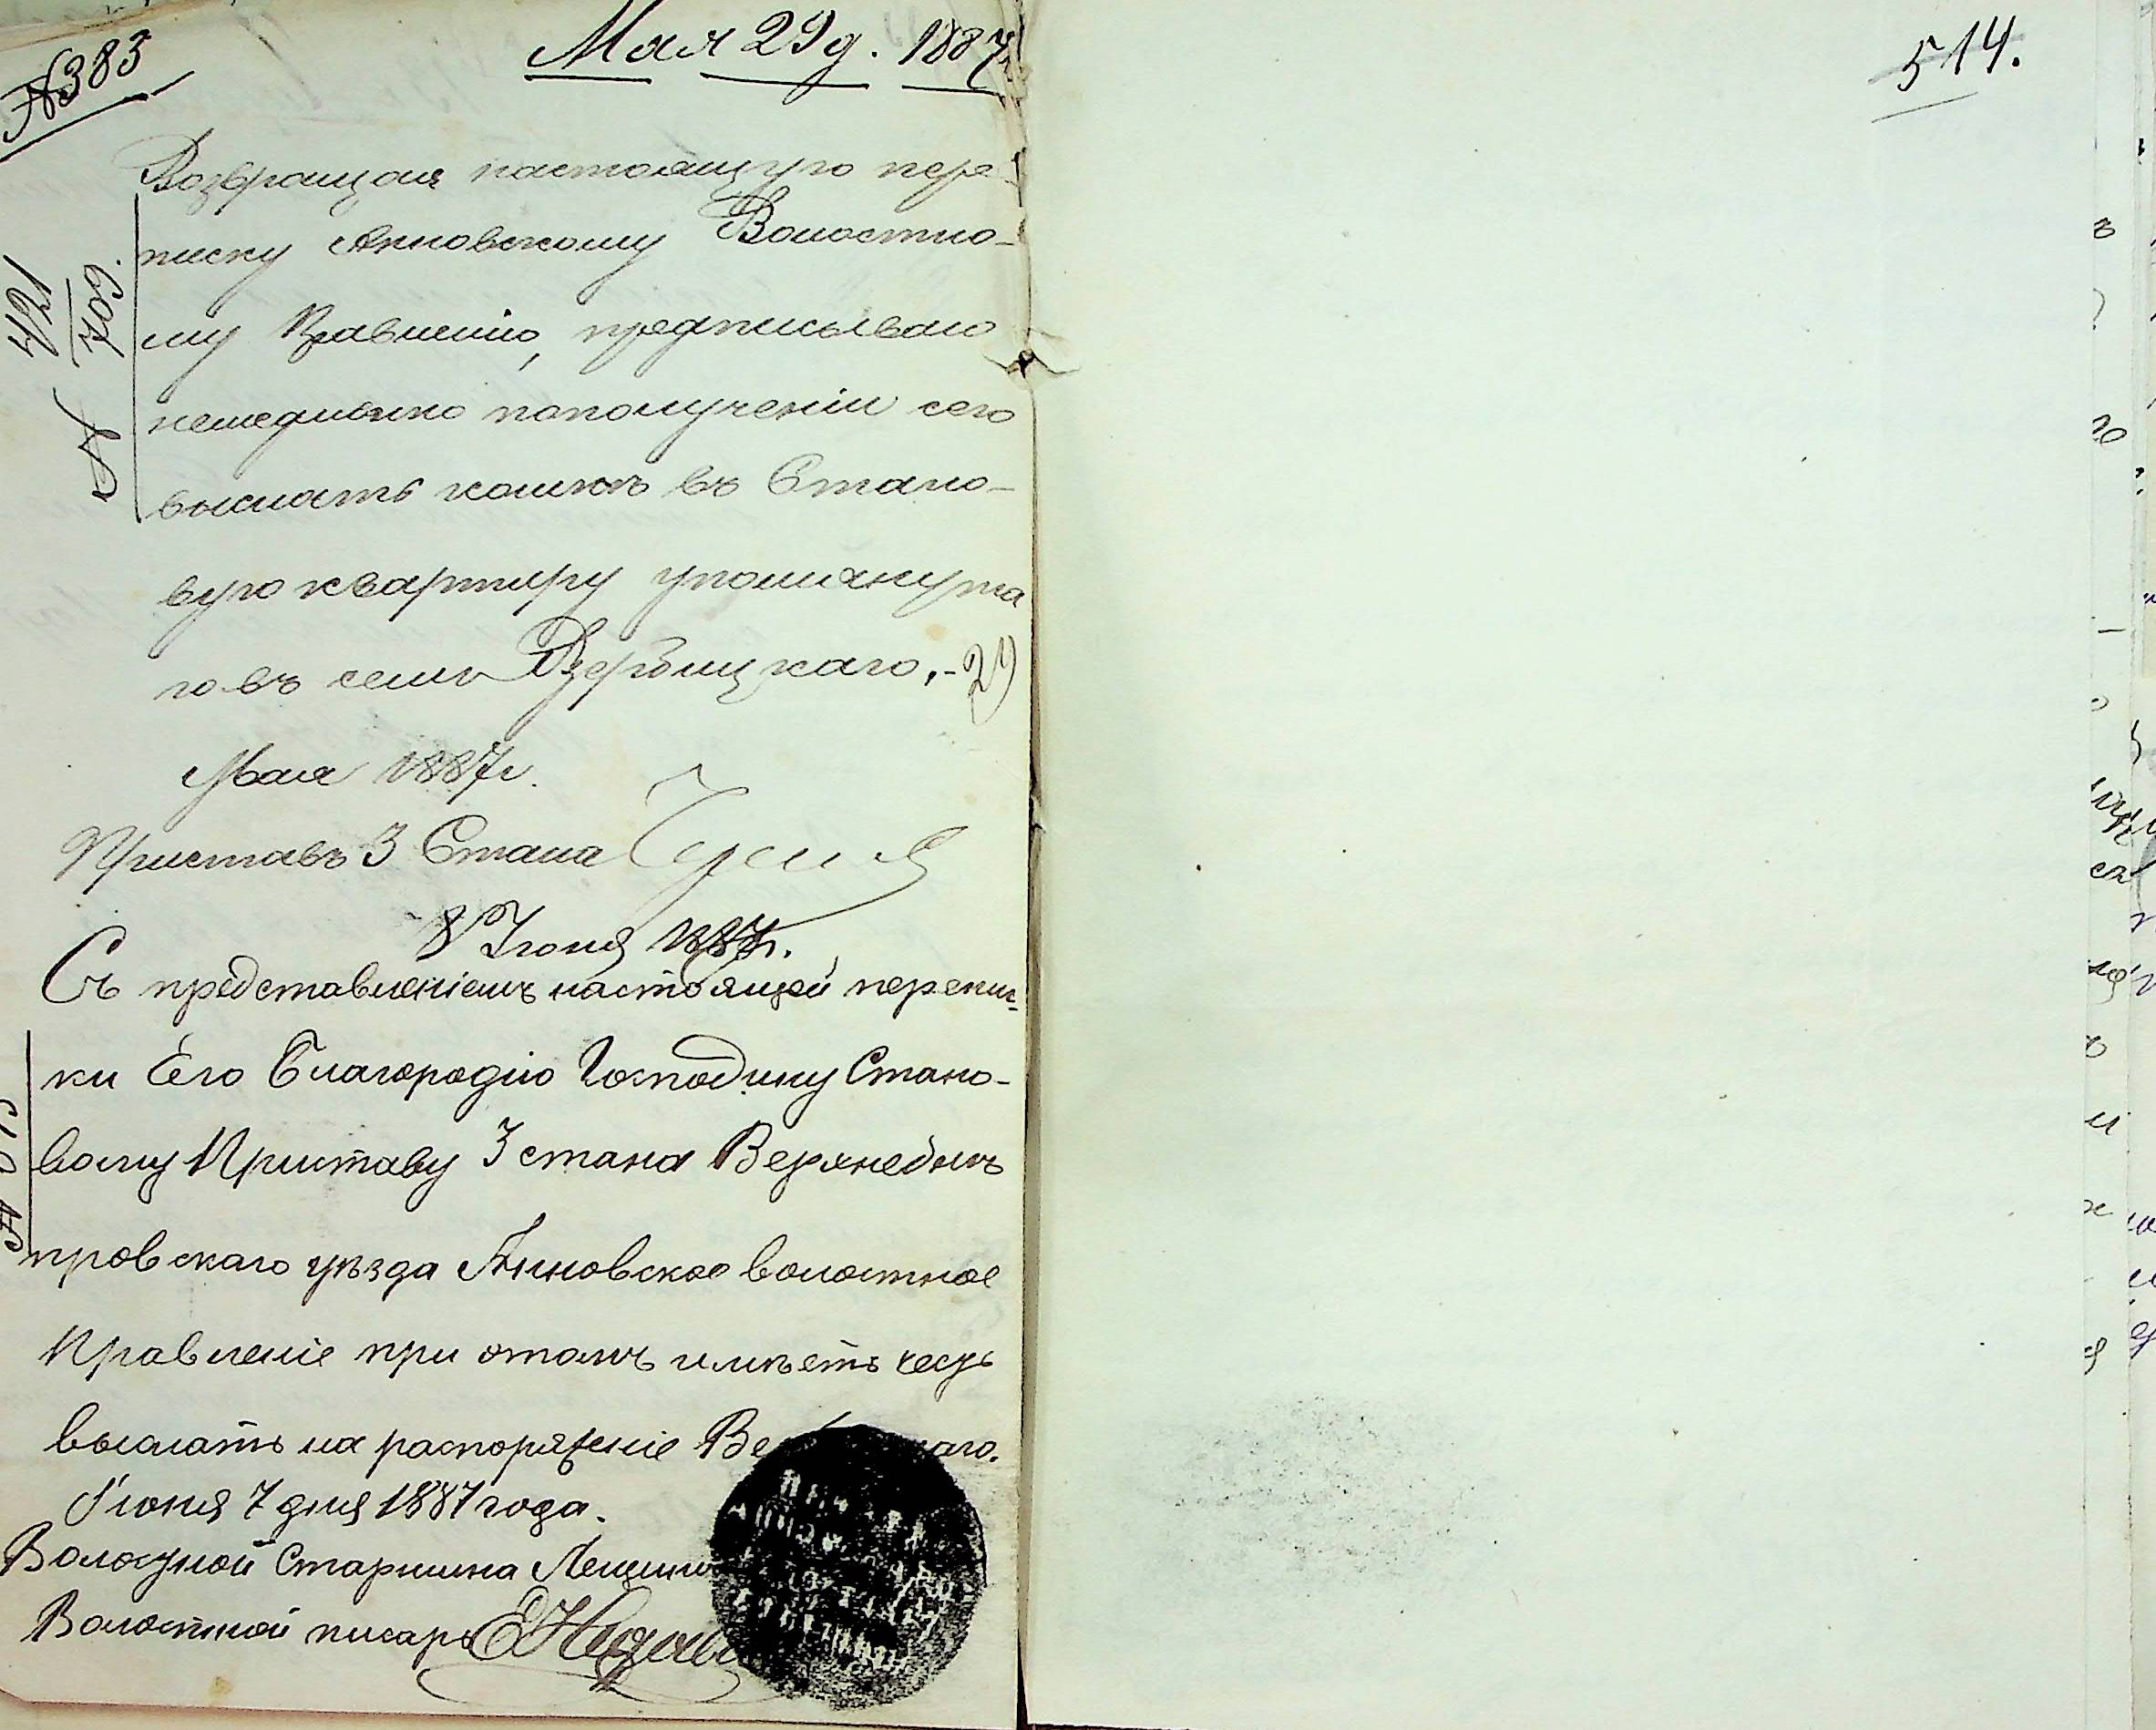 № 383
Мая 29 д. 1887 г.
514.
Возвращая настоящую пере-
писку Анновскому Волостно-
му Правленію, предписываю
немедленно пополученіи сего
выслать комнѣ въ Стано-
вую квартиру упомянута
го въ семъ Вербицкаго. - 29
Мая 1887 г.
№ 421
709.
Приставъ 3 Стана
8 Іюня 1887 г.
Съ представленіемъ настоящей перепис-
ки Его Благородію Господину Стано-
вому Приставу 3 стана Верхнеднѣ
провскаго уѣзда Анновское волостное
Правленіе при этомъ имѣетъ честь
выслать на распоряженіе
Іюня 7 дня 1887 года.
Волостной Старшина
Волостной писарь